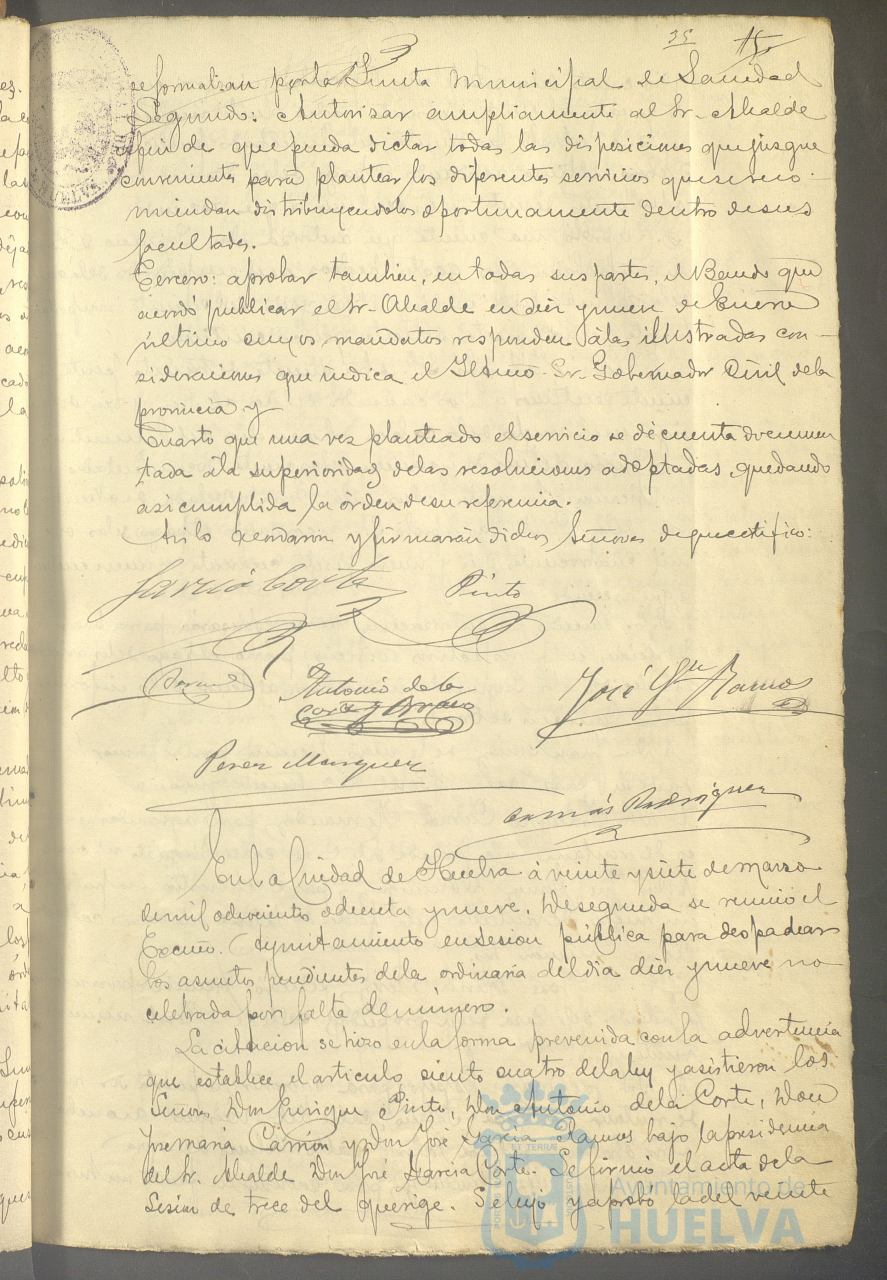 3
35 15
se formalizan por la Junta municipal de Sanidad
Segundo: Autorizar ampliamente al Sr. Alcalde
a fin de que pueda dictar todas las disposiciones que jusgue
convenientes para plantear los diferentes servicios que se reco-
miendan distribuyendolos oportunamente dentro de sus
facultades.
Tercero: aprobar tambien, en todas sus partes, el Bando que
acordó publicar el Sr. Alcalde en diez y nueve de Enero
último cuyos mandatos responden á las illustradas con-
sideraciones que indica el Iltmo. Sr. Gobernador Civil de la
provincia y
Cuarto que una vez planteado el servicio se dé cuenta documen
tada á la superioridad de las resoluciones adoptadas, quedando
asi cumplida la órden de su referencia.
Asi lo acordaron y firmarán dichos Señores de que certifico:
García Corte Pinto
Antonio de la
Corte y
José Gª Ramos
Perez Marquez
Tomás Rodriguez
En la Ciudad de Huelva á veinte y siete de marzo
de mil ochociento ochenta y nueve. De segunda se reunió el
Excmo. Ayuntamiento en sesion pública para despachar
los asuntos pendientes de la ordinaria del dia diez y nueve no
celebrada por falta de número.
La citacion se hizo en la forma prevenida con la advertencia
que establece el articulo siento cuatro de la ley y asistieron los
Señores Don Enrique Pinto, Don Antonio de la Corte, Don
Jose maria Carrion y Don José Garcia Ramos bajo la presidencia
del Sr. Alcalde Don José Garcia Corte. Se firmó el acta de la
sesion de trece del que rige. Se leyó y aprobó la del veinte
Ayuntamiento de
HUELVA